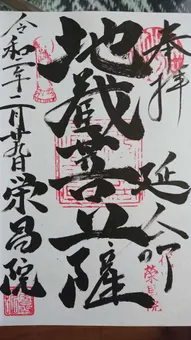 奉拝
延命
地蔵菩薩
令和二年一月廿九日
栄昌院